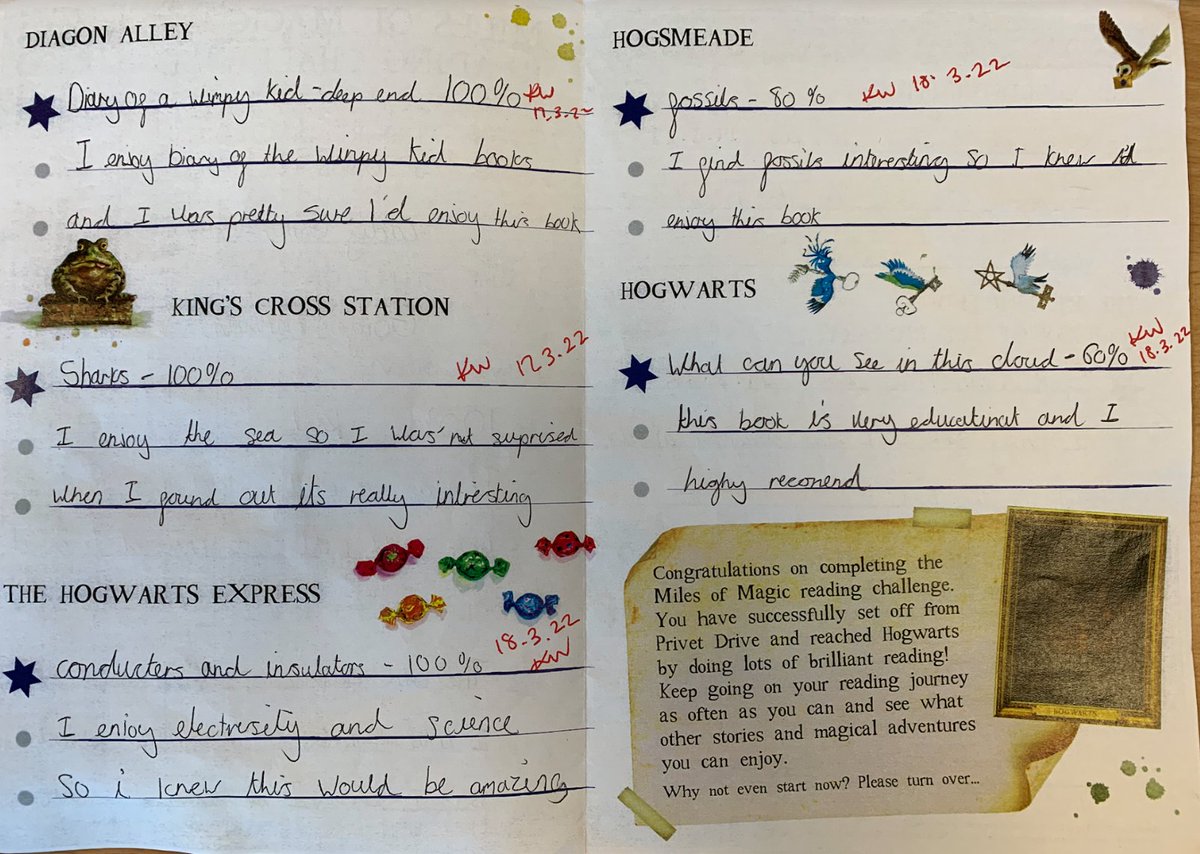 DIAGON ALLEY
Diary of a wimpy kid - deep end 100% KW
17.3.22
I enjoy Diary of the Wimpy Kid books
and I was pretty sure I'd enjoy this book
KING'S CROSS STATION
Sharks - 100% KW 17.3.22
I enjoy the sea so I was'nt suprised
when I found out its really intresting
THE HOGWARTS EXPRESS
18.3.22
conducters and insulators - 100% KW
I enjoy electresity and science
So i knew this would be amazing
HOGSMEADE
fossils - 80% KW 18.3.22
I find fossils interesting so I knew I'd
enjoy this book
HOGWARTS
What can you see in this cloud - 60% KW 18.3.22
this book is very educatinat and I
highy reconend
Congratulations on completing the
Miles of Magic reading challenge.
You have successfully set off from
Privet Drive and reached Hogwarts
by doing lots of brilliant reading!
Keep going on your reading journey
as often as you can and see what
other stories and magical adventures
you can enjoy.
Why not even start now? Please turn over...
HOGWARTS